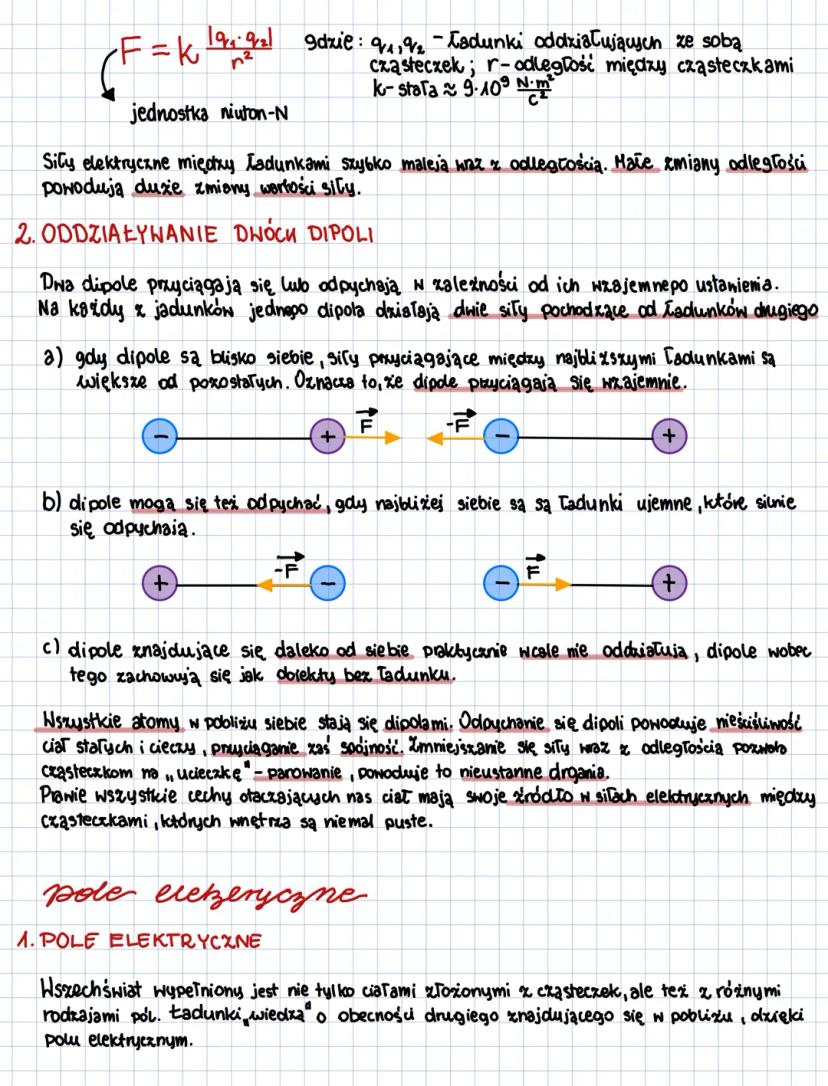 F = k |q₁·q₂| / r²
gdzie: q₁,q₂ - ładunki oddziałujących ze sobą
cząsteczek; r - odległość między cząsteczkami
k - stała ≈ 9·10⁹ N·m²/C²
jednostka niuton-N
Siły elektryczne między ładunkami szybko maleją wraz z odległością. Małe zmiany odległości
powodują duże zmiany wartości siły.
2. ODDZIAŁYWANIE DWÓCH DIPOLI
Dwa dipole przyciągają się lub odpychają w zależności od ich wzajemnepo ustawienia.
Na każdy z jadunków jednepo dipola działają dwie siły pochodzące od ładunków drugiego
a) gdy dipole są blisko siebie, siły przyciągające między najbliższymi ładunkami są
większe od pozostałych. Oznacza to, że dipole przyciągają się wzajemnie.
- + F -F - +
b) dipole mogą się też odpychać, gdy najbliżej siebie są są ładunki ujemne, które silnie
się odpychają.
+ -F - - F +
c) dipole znajdujące się daleko od siebie praktycznie wcale nie oddziałują, dipole wobec
tego zachowują się jak obiekty bez ładunku.
Wszystkie atomy w pobliżu siebie stają się dipolami. Odpychanie się dipoli powoduje nieściśliwość
ciał stałych i cieczy, przyciąganie zaś spójność. Zmniejszanie się siły wraz z odległością pozwala
cząsteczkom na „ucieczkę" - parowanie, powoduje to nieustanne drgania.
Prawie wszystkie cechy otaczających nas ciał mają swoje źródło w siłach elektrycznych między
cząsteczkami, których wnętrza są niemal puste.
pole elektryczne
1. POLE ELEKTRYCZNE
Wszechświat wypełniony jest nie tylko ciałami złożonymi z cząsteczek, ale też z różnymi
rodzajami pól. Ładunki „wiedzą" o obecności drugiego znajdującego się w pobliżu, dzięki
polu elektrycznym.